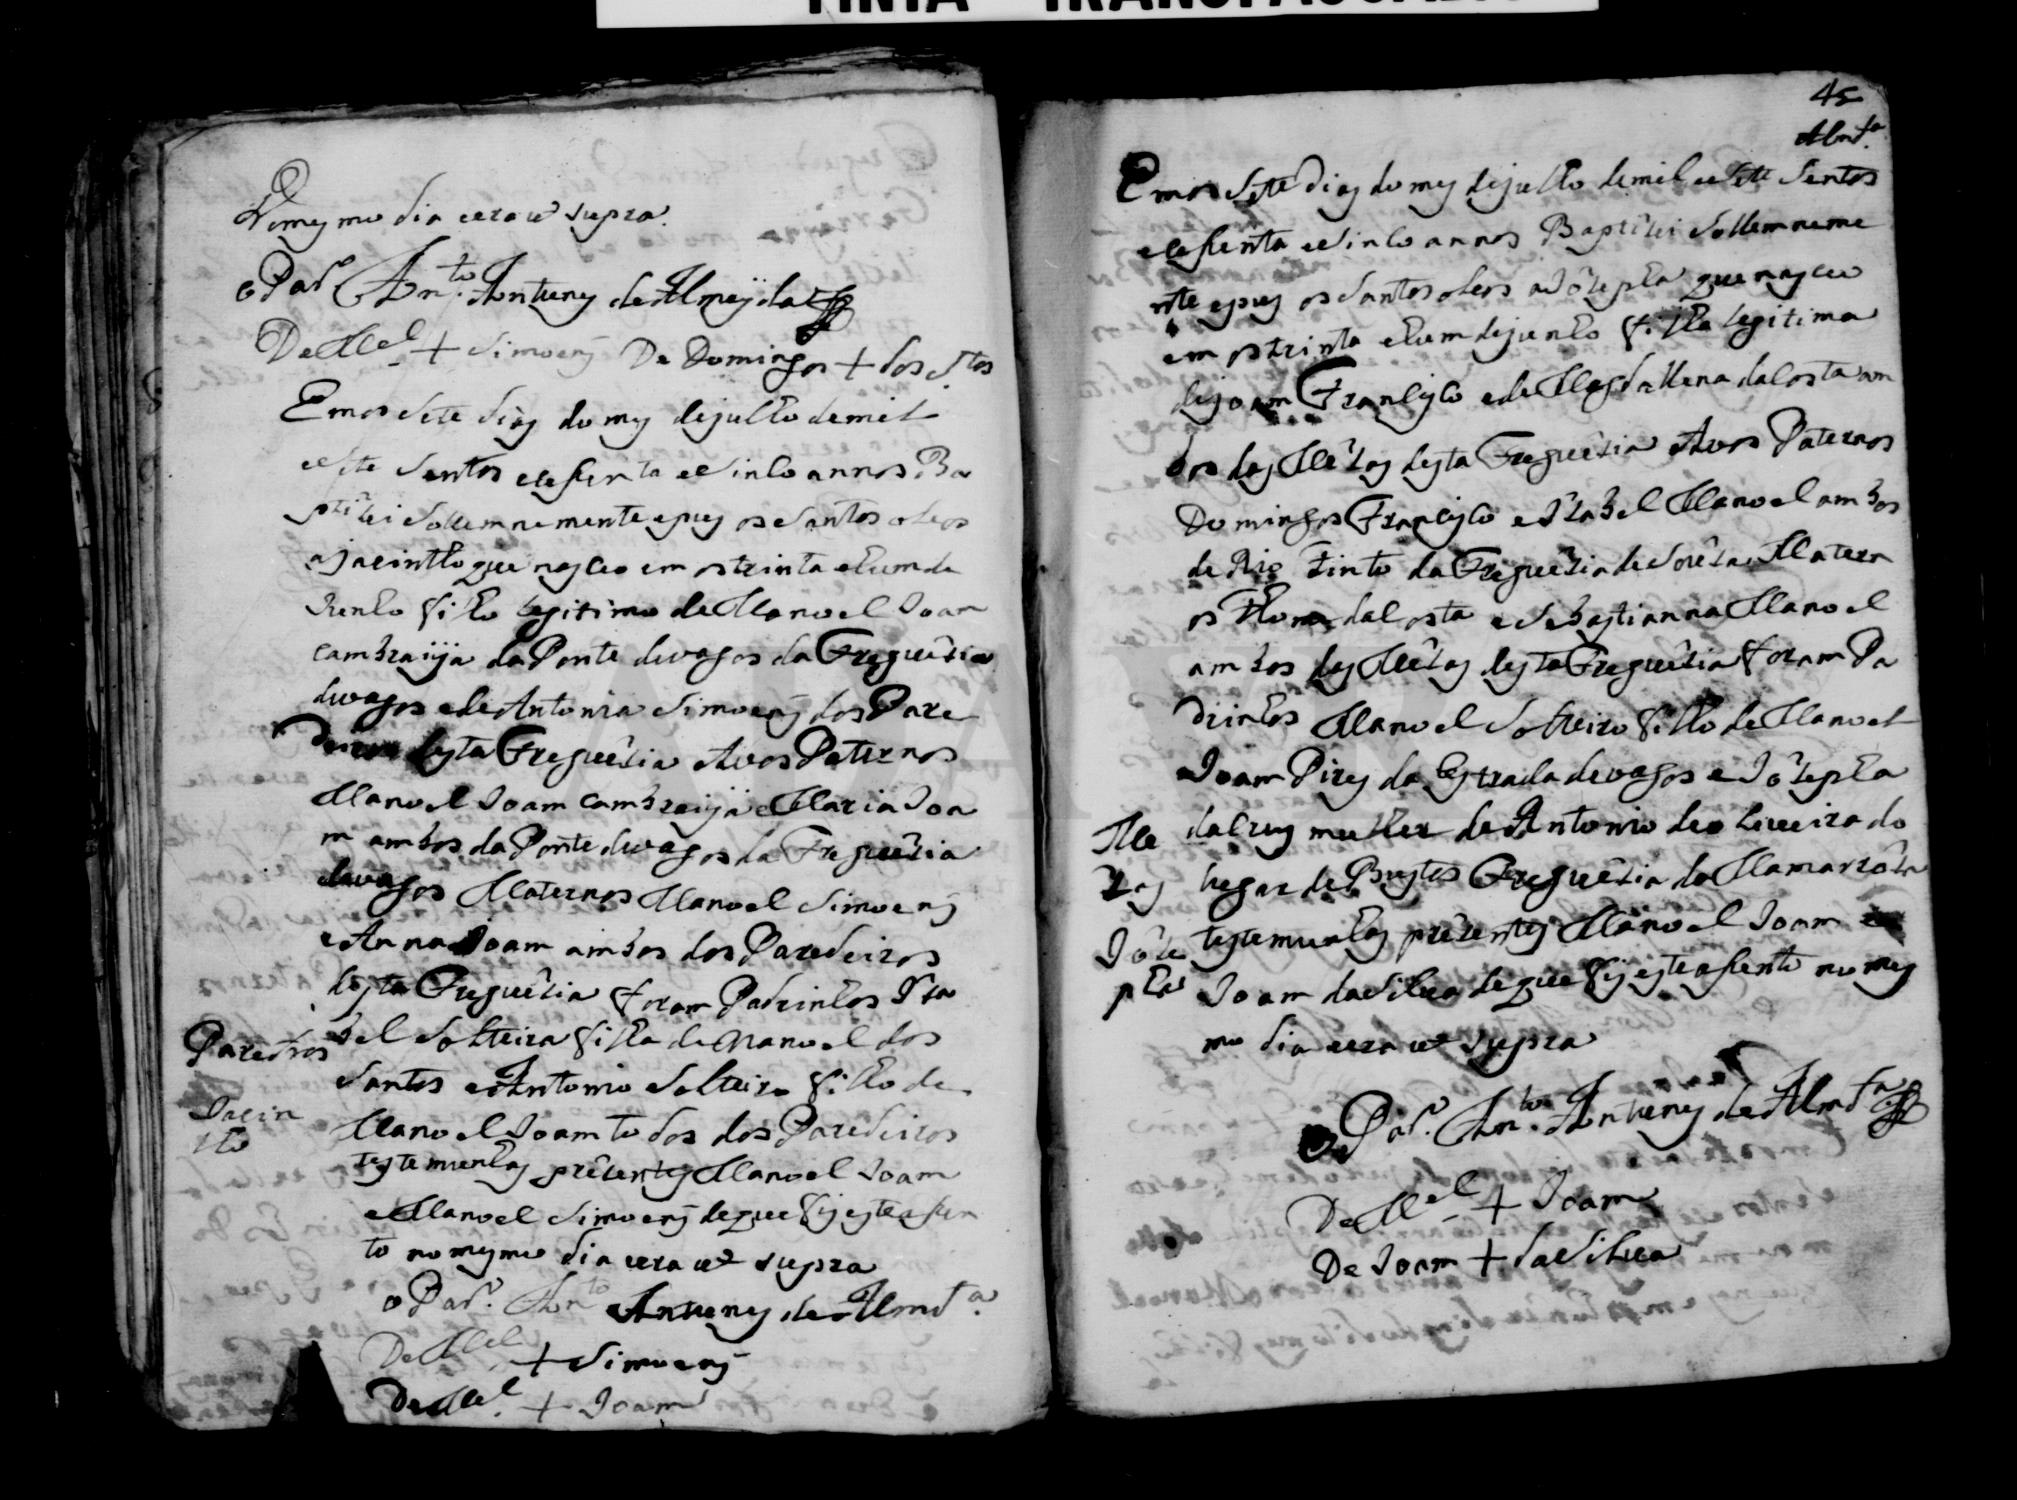 No mesmo dia e era ut supra
o Par.e An.to Antunes de Almeyda
De M.el + Simoens De Domingos + dos S.tos
Em os sete dias do mes de julho de mil
e sete sentos e sesenta e sinco annos Ba
ptizei sollemnemente e pus os santos oleos
a jacintho que nasceo em os trinta e hum de
Junho filho legitimo de Manoel Joam
cambraija da Ponte de vagos da Freguezia
de vagos e de Antonia Simoens dos Pare
deiros desta Freguezia Avos Paternos
Manoel Joam cambraija e Maria Joa
m ambos da Ponte de vagos da Freguezia
de vagos Maternos Manoel Simoens
e Anna Joam ambos dos Paredeiros
desta Freguezia foram Padrinhos Iza
bel solteira filha de Manoel dos
Santos e Antonio solteiro filho de
Manoel Joam todos dos Paredeiros
testemunhas prezentes Manoel Joam
e Manoel Simoens de que fis este asen
to no mesmo dia e era ut supra
o Par.e An.to Antunes de Almd.a
De M.el + Simoens
De M.el + Joam
Paredros
Jacin
tho
45
Almd.a
Em os sete dias do mes de julho de mil e sete sentos
e sesenta e sinco annos Baptizei sollemneme
nte e pus os santos oleos a Jozepha que nasceo
em os trinta e hum de junho filha legitima
de joam Francisco e de Magdallena da Costa am
bos das Mezas desta Freguezia Avos Paternos
Domingos Francisco e Izabel Manoel ambos
de Rio Tinto da Freguezia de Soreza Matern
os Thome da Costa e Sebastianna Manoel
ambos das Mezas desta Freguezia foram Pa
drinhos Manoel solteiro filho de Manoel
Joam Pires da Estrada de vagos e Jozepha
da Crus mulher de Antonio de oliveira do
lugar de Bustos Freguezia da Mamarroza
testemunhas prezentes Manoel Joam e
Joam da Silva de que fis este asento no mes
mo dia e era ut supra
o Par.e An.to Antunes de Almd.a
De M.el + Joam
De Joam + da Silva
Me
zas
Joze
pha